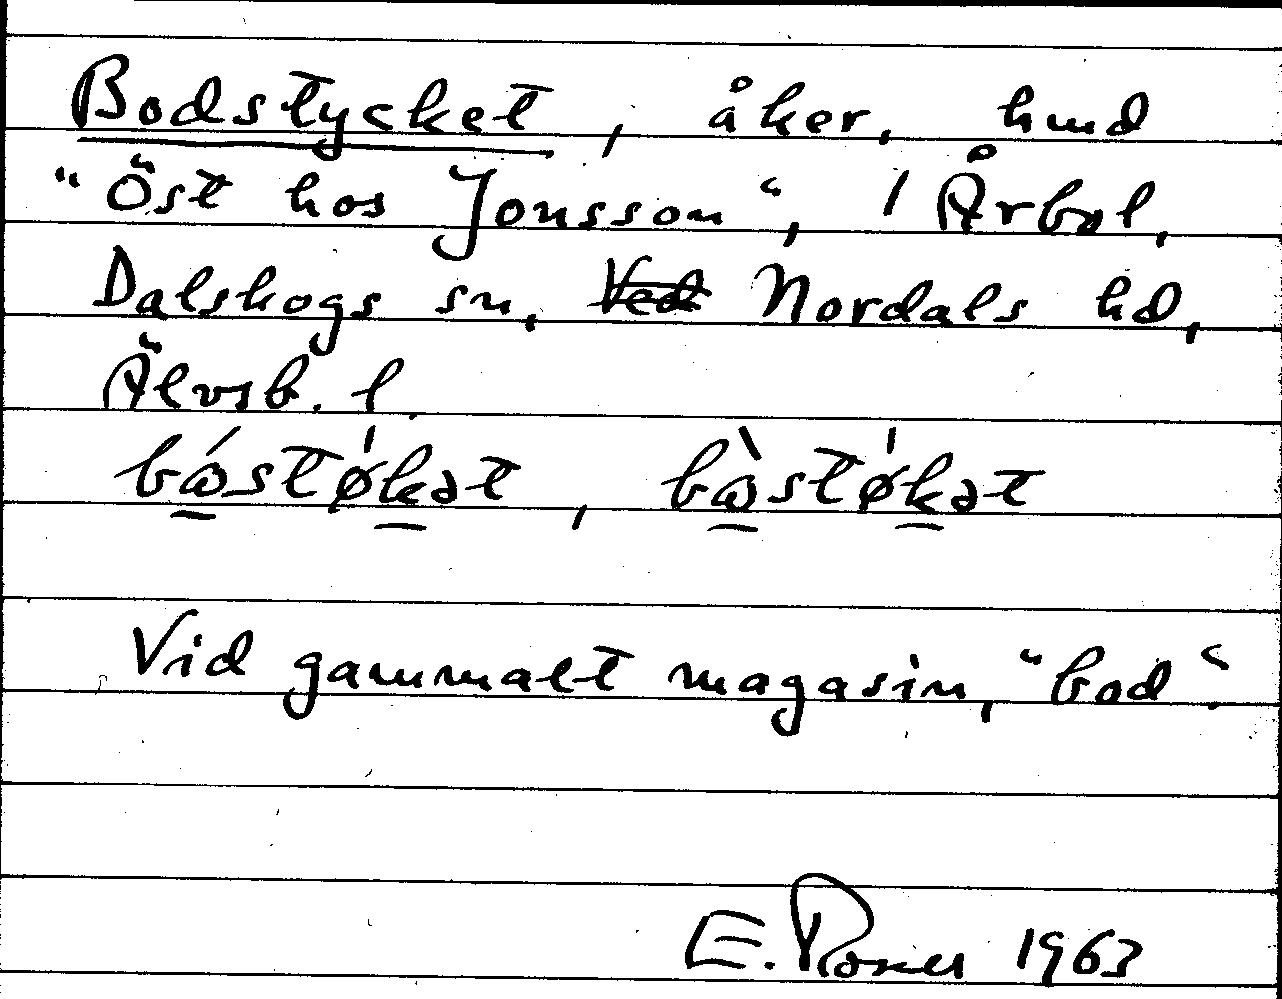 Bodstycket, åker, hmd
"Öst hos Jonsson", / Årbol,
Dalskogs sn, Ved Nordals hd,
Älvsb. l.
bǿstǿkət, bø̀støkət
Vid gammalt magasin, "bod".
E. 1963